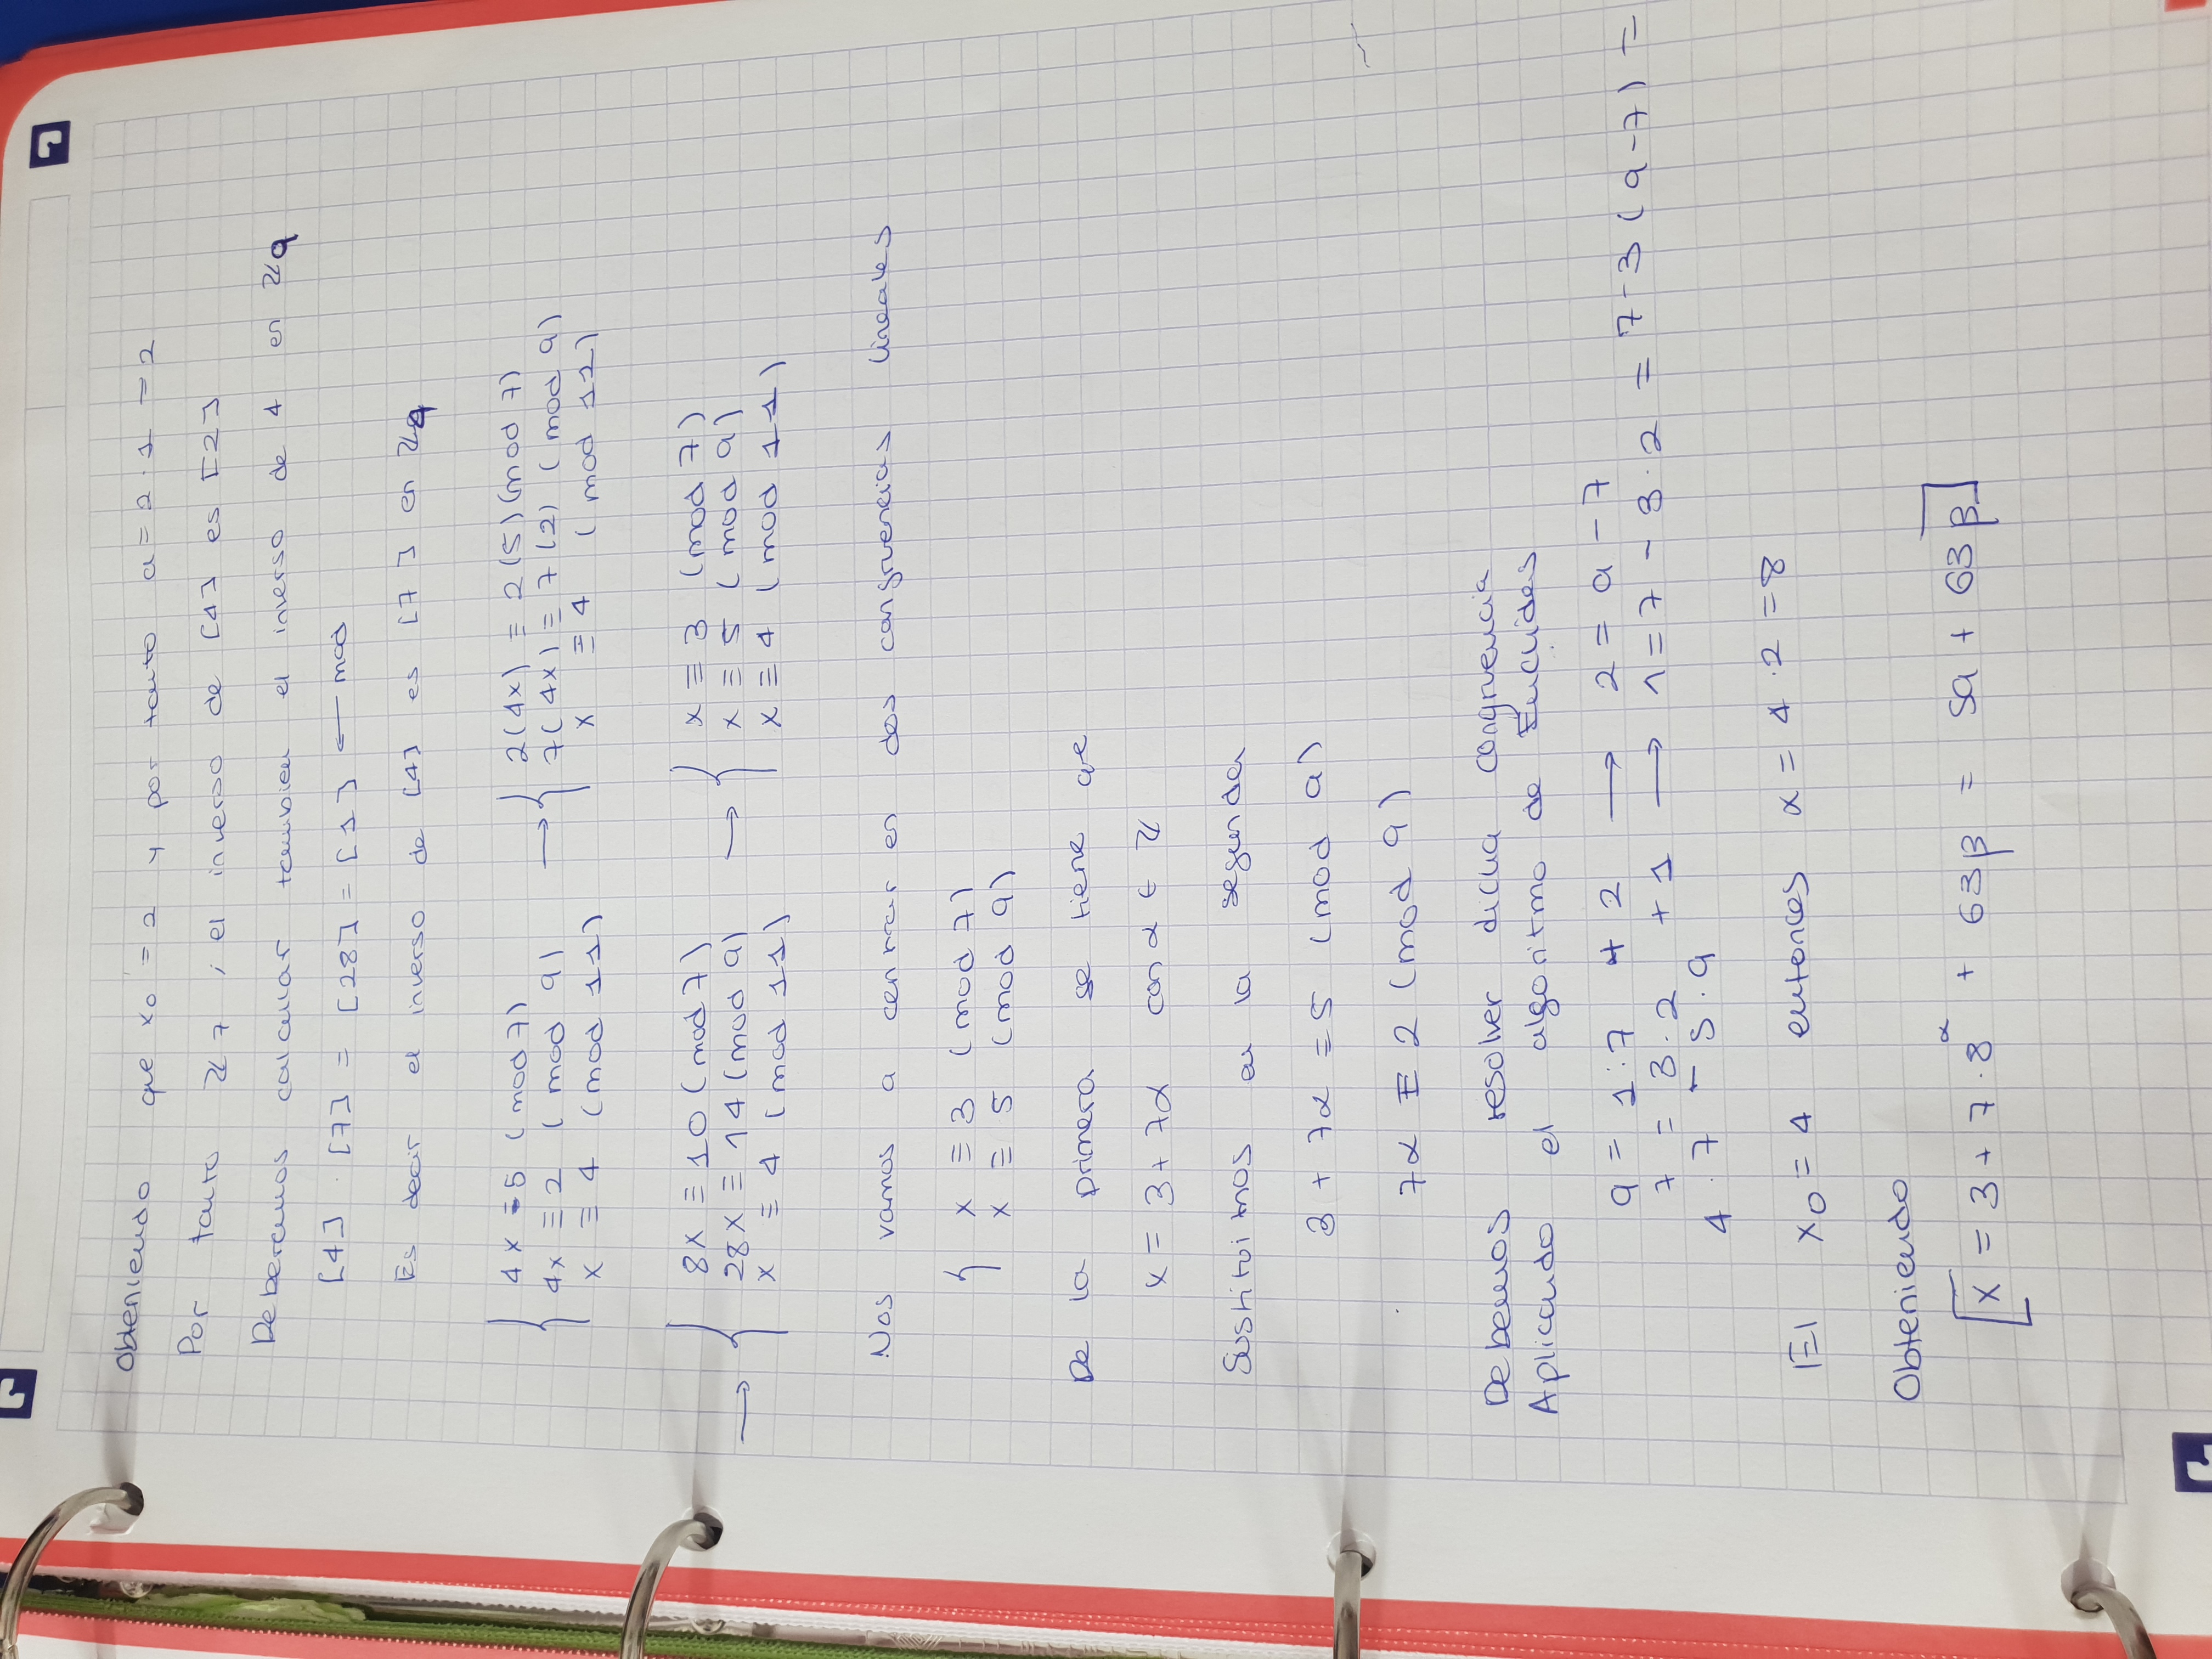 Obteniendo que x₀ = 2 y por tanto a = 2 · 1 = 2
Por tanto ℤ₇, el inverso de [4] es [2]
Deberemos calcular tambien el inverso de 4 en ℤ₉
[4] · [7] = [28] = [1] ← mod
Es decir el inverso de [4] es [7] en ℤ₉
{ 4x ≡ 5 (mod 7) → { 2(4x) ≡ 2(5) (mod 7)
4x ≡ 2 (mod 9) 7(4x) ≡ 7(2) (mod 9)
x ≡ 4 (mod 11) x ≡ 4 (mod 12)
→ { 8x ≡ 10 (mod 7) → { x ≡ 3 (mod 7)
28x ≡ 14 (mod 9) x ≡ 5 (mod 9)
x ≡ 4 (mod 11) x ≡ 4 (mod 11)
Nos vamos a centrar en dos congruencias lineales
{ x ≡ 3 (mod 7)
x ≡ 5 (mod 9)
De la primera se tiene que
x = 3 + 7α con α ∈ ℤ
Sustituimos en la segunda
3 + 7α = 5 (mod 9)
7α ≡ 2 (mod 9)
Debemos resolver dicha congruencia
Aplicando el algoritmo de Euclides
9 = 1 · 7 + 2 → 2 = 9 - 7
7 = 3 · 2 + 1 → 1 = 7 - 3 · 2 = 7 - 3(9 - 7) =
4 · 7 - 3 · 9
El x₀ = 4 entonces α = 4 · 2 = 8
Obteniendo
x = 3 + 7 · 8 + 63β = 59 + 63β